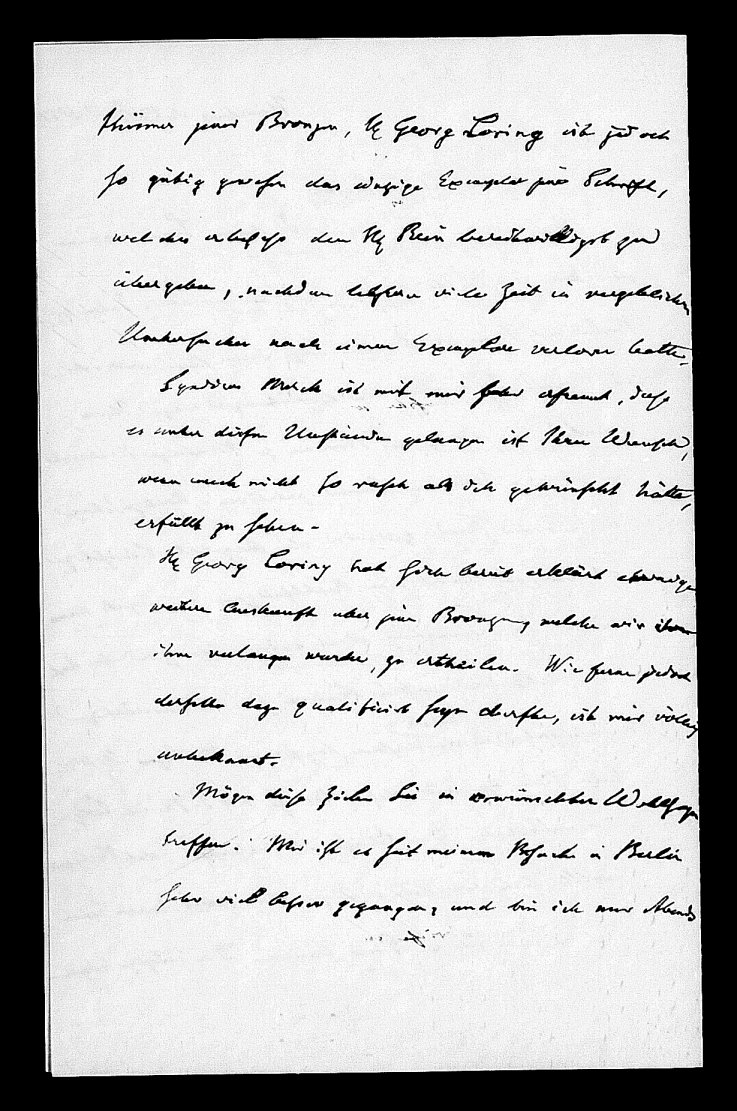 jener Bronzen, Hr Georg Loring ist jedoch
so gütig gewesen das einzige Exemplar jener Schrift,
welches er besass dem Hr Bein bereitwilligst zu
übergeben, nachdem letzterer viele Zeit in vergeblichem
Umhersuchen nach einem Exemplare verloren hatte.
Syndicus Merck ist mit mir sehr erfreuet, dass
es unter diesen Umständen gelungen ist Ihren Wunsch,
wenn auch nicht so rasch als ich gewünscht hätte,
erfüllt zu sehen.
Hr Georg Loring hat sich bereit erklärt etwanige
weitere Auskunft über jene Bronzen, welche wir von
ihm verlangen wurden, zu ertheilen. Wie ferne jedoch
derselbe dazu qualificirt seyn durfte, ist mir völlig
unbekannt.
Mögen diese Zeilen Sie in erwünschtem Wohlseyn
treffen. Mir ist es seit meinem Besuche in Berlin
sehr viel besser gegangen, und bin ich nur Abends